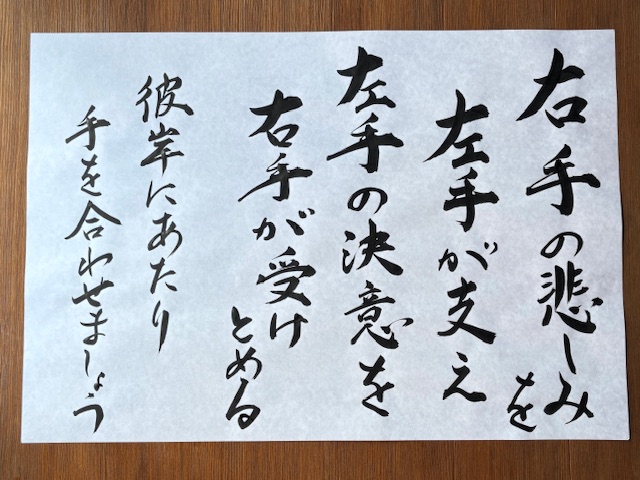 右手の悲しみを
左手が支え
左手の決意を
右手が受けとめる
彼岸にあたり
手を合わせましょう